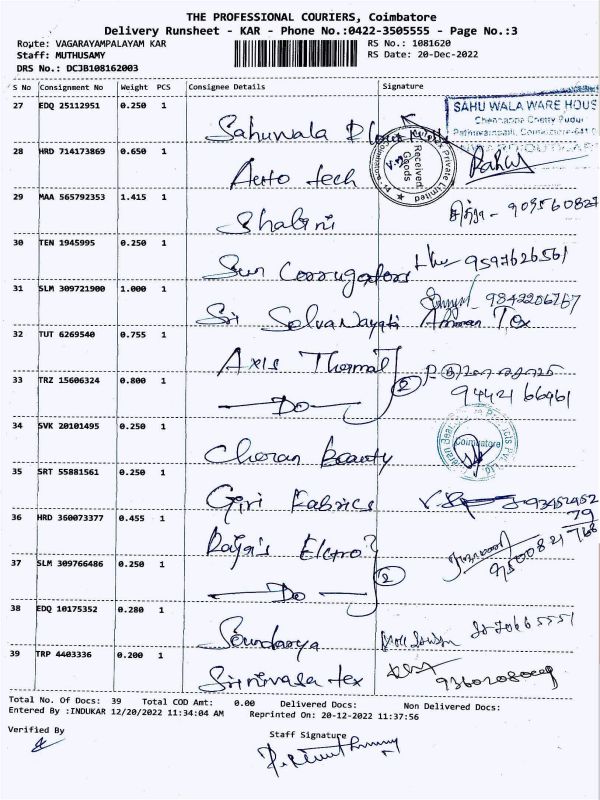 THE PROFESSIONAL COURIERS, Coimbatore
Delivery Runsheet - KAR - Phone No.:0422-3505555 - Page No.:3
Route: VAGARAYAMPALAYAM KAR RS No.: 1081620
Staff: MUTHUSAMY RS Date: 20-Dec-2022
DRS No.: DCJB108162003
S No Consignment No Weight PCS Consignee Details Signature
27 EDQ 25112951 0.250 1 Sahuwala
SAHU WALA WARE HOUS
28 HRD 714173869 0.650 1 Auto tech
Received Goods Private Limited
29 MAA 565792353 1.415 1 Shalini
30 TEN 1945995 0.250 1 Sun Corrugators 9597626561
31 SLM 309721900 1.000 1 Sri Selvanayaki 9842206767
32 TUT 6269540 0.755 1 Axis Thermal 2
33 TRZ 15606324 0.800 1 Do 9442166461
34 SVK 20101495 0.250 1 Cheran Beauty Coimbatore
35 SRT 55881561 0.250 1 Giri Fabrics
36 HRD 360073377 0.455 1 Raja's Electro
37 SLM 309766486 0.250 1 Do 2 9500821768
38 EDQ 10175352 0.280 1 Soundarya
39 TRP 4403336 0.200 1 Srinivasa tex
Total No. Of Docs: 39 Total COD Amt: 0.00 Delivered Docs: Non Delivered Docs:
Entered By :INDUKAR 12/20/2022 11:34:04 AM Reprinted On: 20-12-2022 11:37:56
Verified By Staff Signature